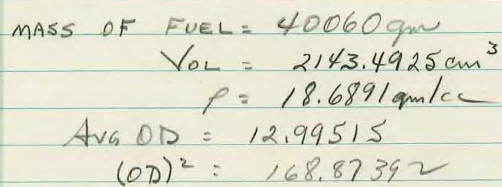 MASS OF FUEL = 40060 gm
VOL = 2143.4925 cm³
ρ = 18.6891 gm/cc
AVG OD = 12.99515
(OD)² = 168.87392